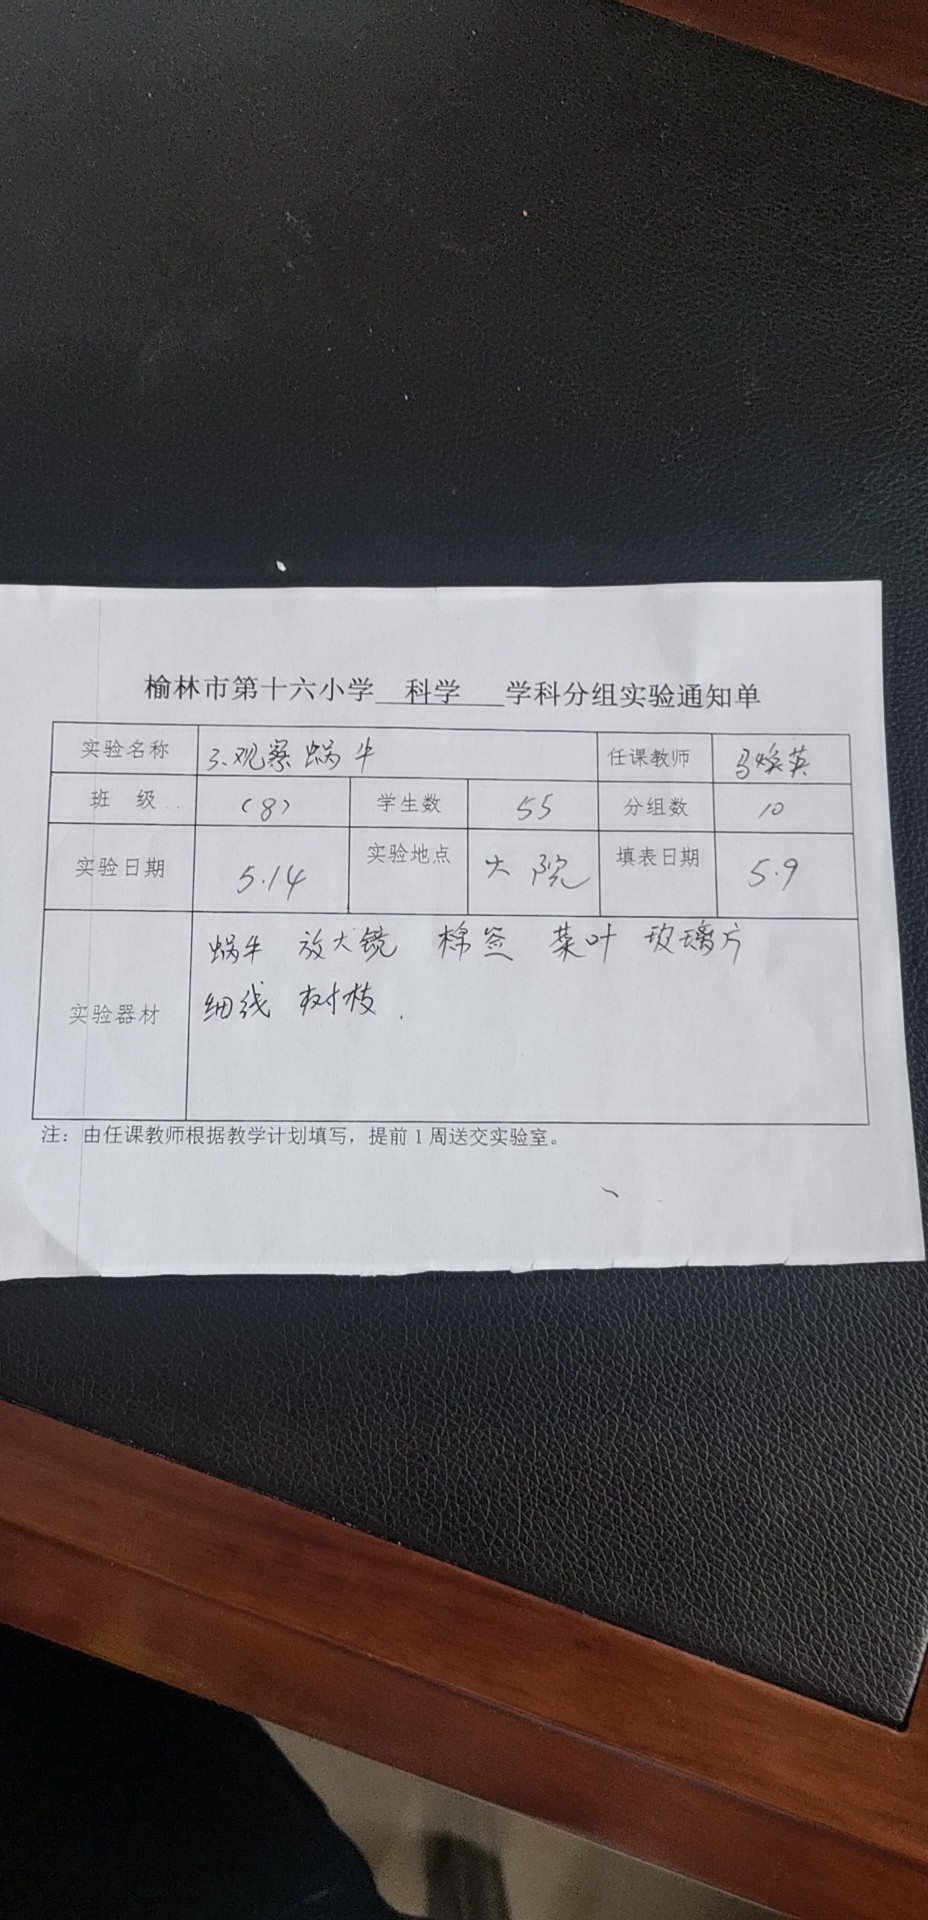 榆林市第十六小学 科学 学科分组实验通知单
实验名称 3.观察蜗牛 任课教师 马焕英
班 级 (8) 学生数 55 分组数 10
实验日期 5.14 实验地点 大院 填表日期 5.9
蜗牛 放大镜 棉签 菜叶 玻璃片
实验器材 细线 树枝.
注：由任课教师根据教学计划填写，提前1周送交实验室。